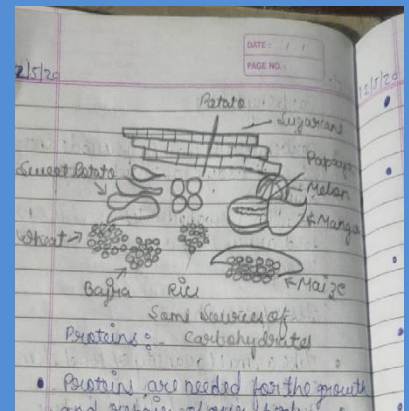 DATE: / /
PAGE NO.:
2/5/20
12/5/20
Potato
Sugarcane
Papaya
Sweet Potato
Melon
Mango
Wheat
Bajra
Rice
Maize
Some Sources of
Carbohydrates
Proteins:-
• Proteins are needed for the growth
and repair of